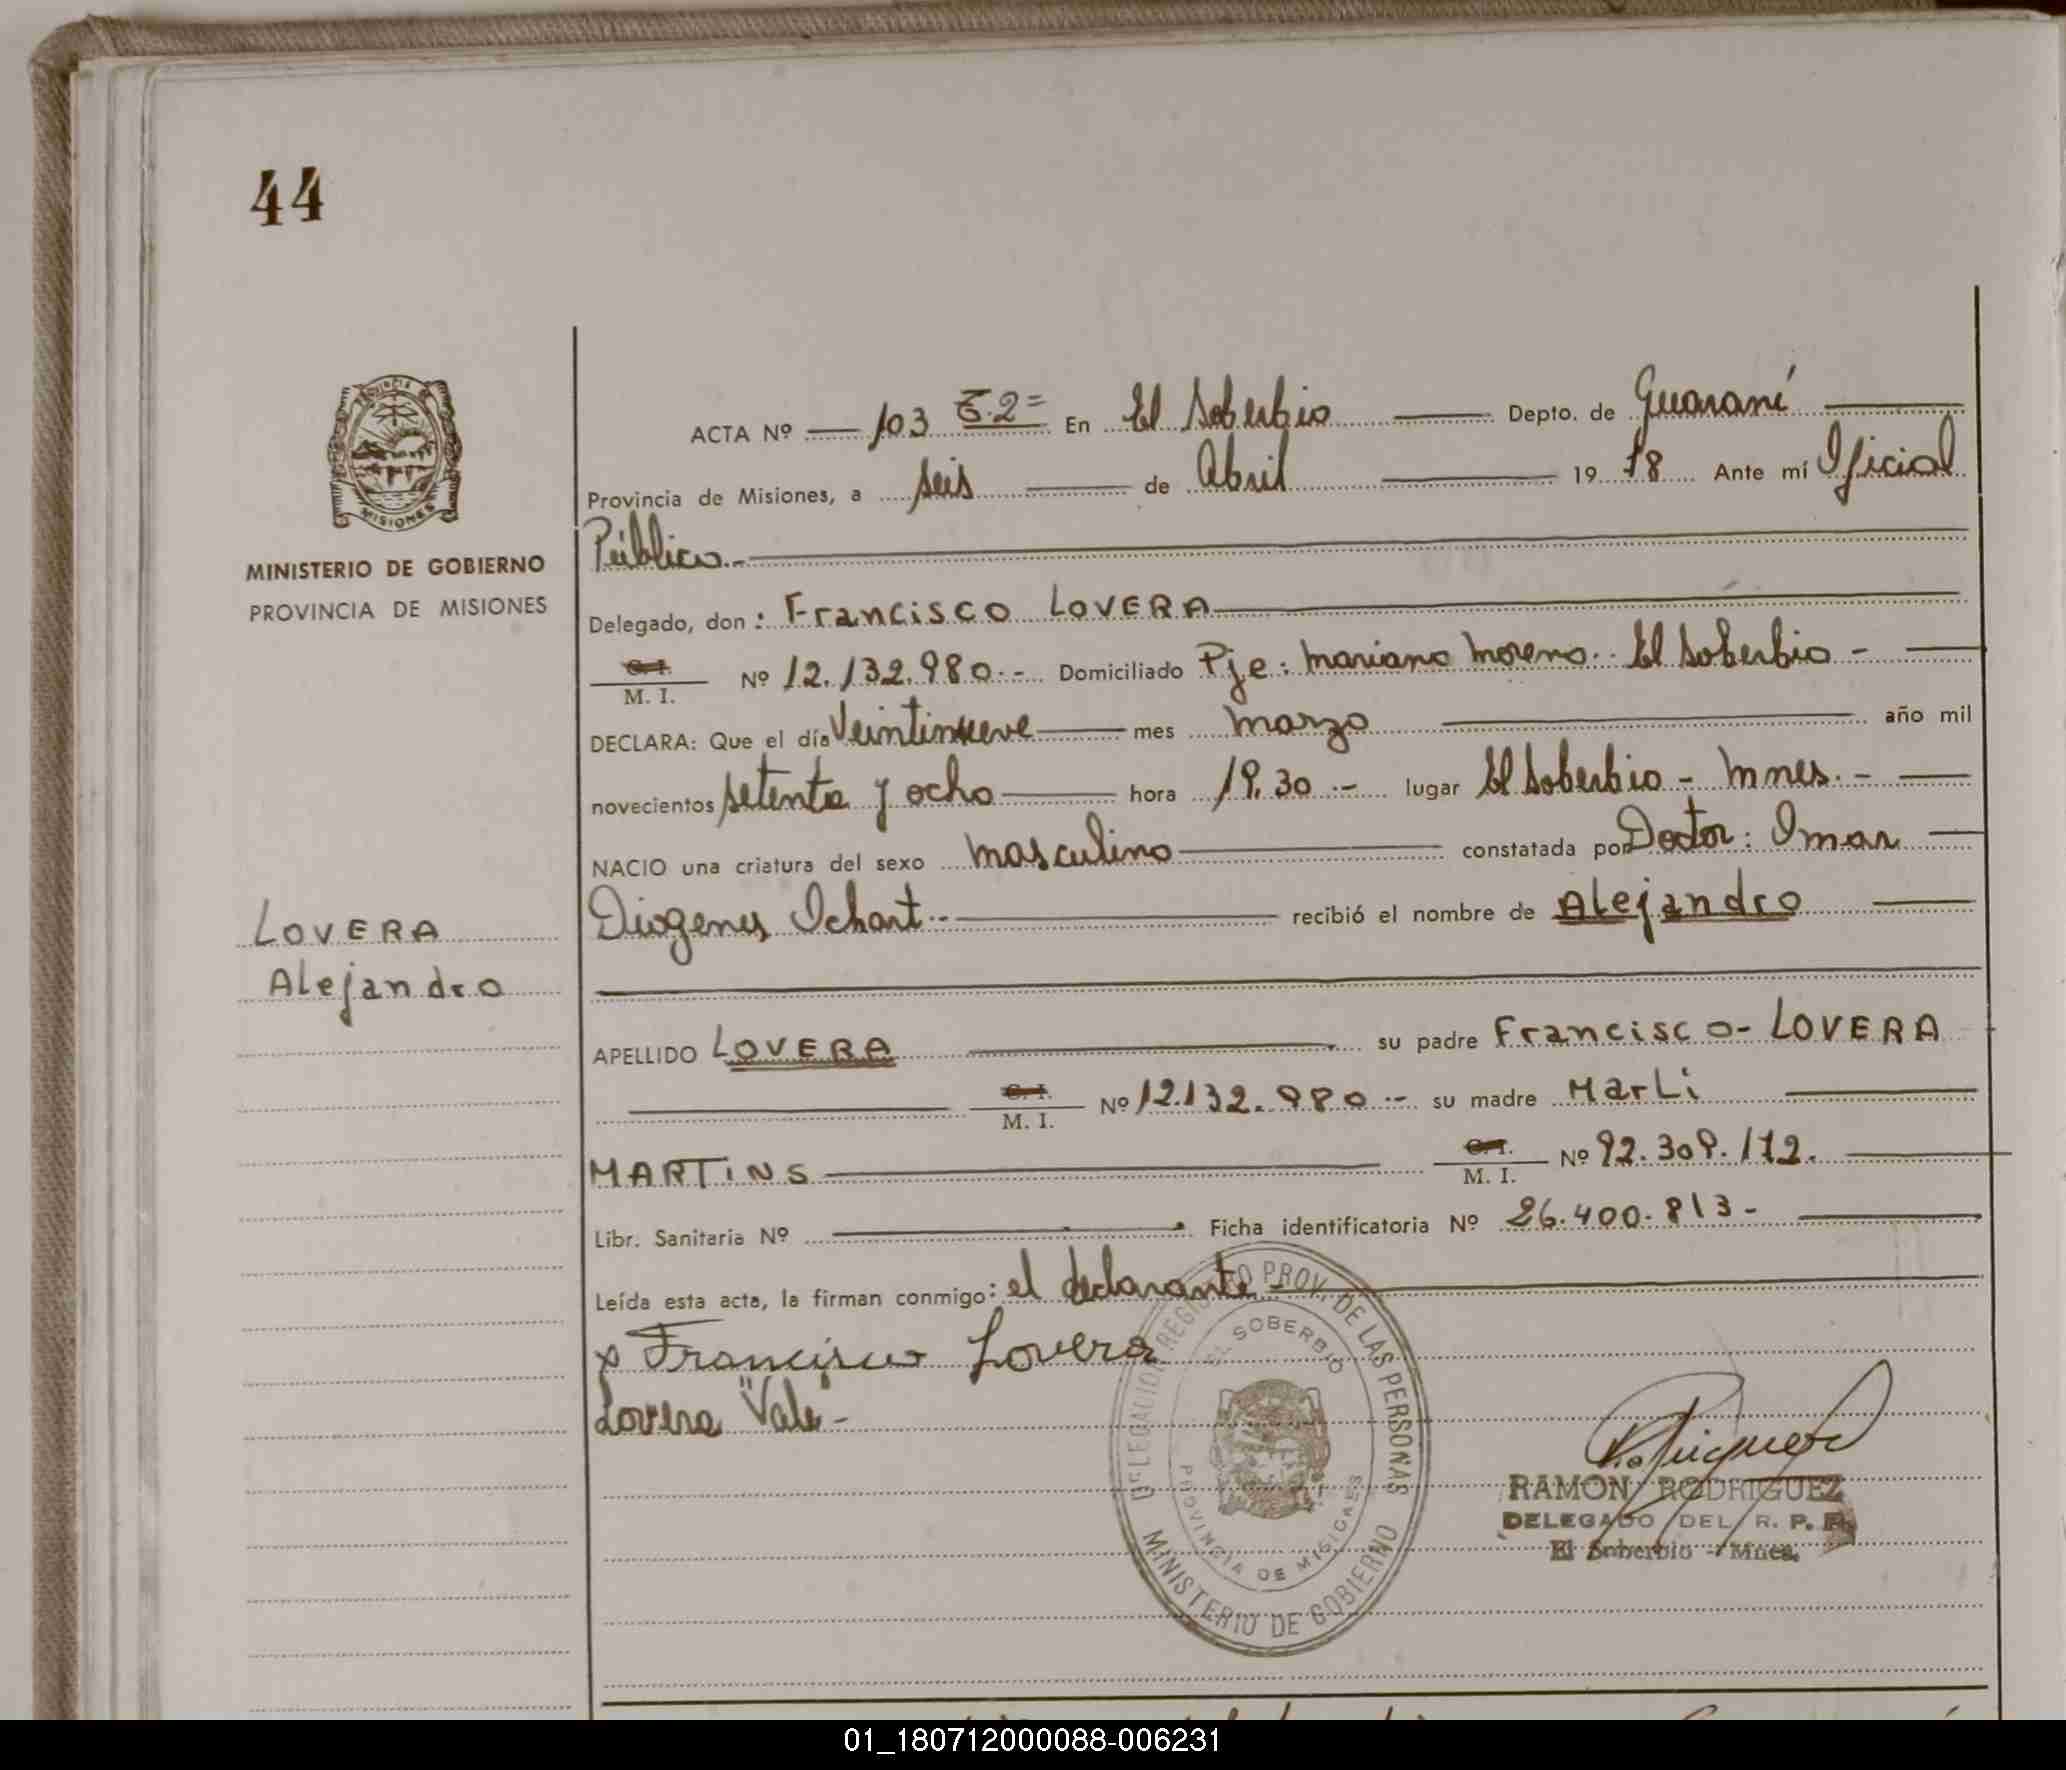 44
PROVINCIA
MISIONES
MINISTERIO DE GOBIERNO
PROVINCIA DE MISIONES
ACTA Nº 103 T.2= En El Soberbio Depto. de Guaraní
Provincia de Misiones, a seis de Abril 19 78 Ante mí Oficial
Público.-
Delegado, don: Francisco LOVERA
C. I. M. I. Nº 12.132.980.- Domiciliado Pje: Mariano Moreno.. El Soberbio -
DECLARA: Que el día Veintinueve mes Marzo año mil
novecientos setenta y ocho hora 19,30.- lugar El Soberbio - Mnes.-
NACIO una criatura del sexo masculino constatada por Doctor: Omar
Diogenes Ichart.- recibió el nombre de Alejandro
LOVERA
Alejandro
APELLIDO LOVERA su padre Francisco- LOVERA
C. I. M. I. Nº 12.132.980.- su madre Marli
MARTiNS C. I. M. I. Nº 92.309.172.
Libr. Sanitaria Nº Ficha identificatoria Nº 26.400.813-
Leída esta acta, la firman conmigo: el declarante-
x Francisco Lovera
Lovera "Vale"-
DELEGACION REGISTRO PROV. DE LAS PERSONAS
EL SOBERBIO
PROVINCIA DE MISIONES
MINISTERIO DE GOBIERNO
RAMON RODRIGUEZ
DELEGADO DEL R. P. P.
El Soberbio - Mnes.
01_180712000088-006231